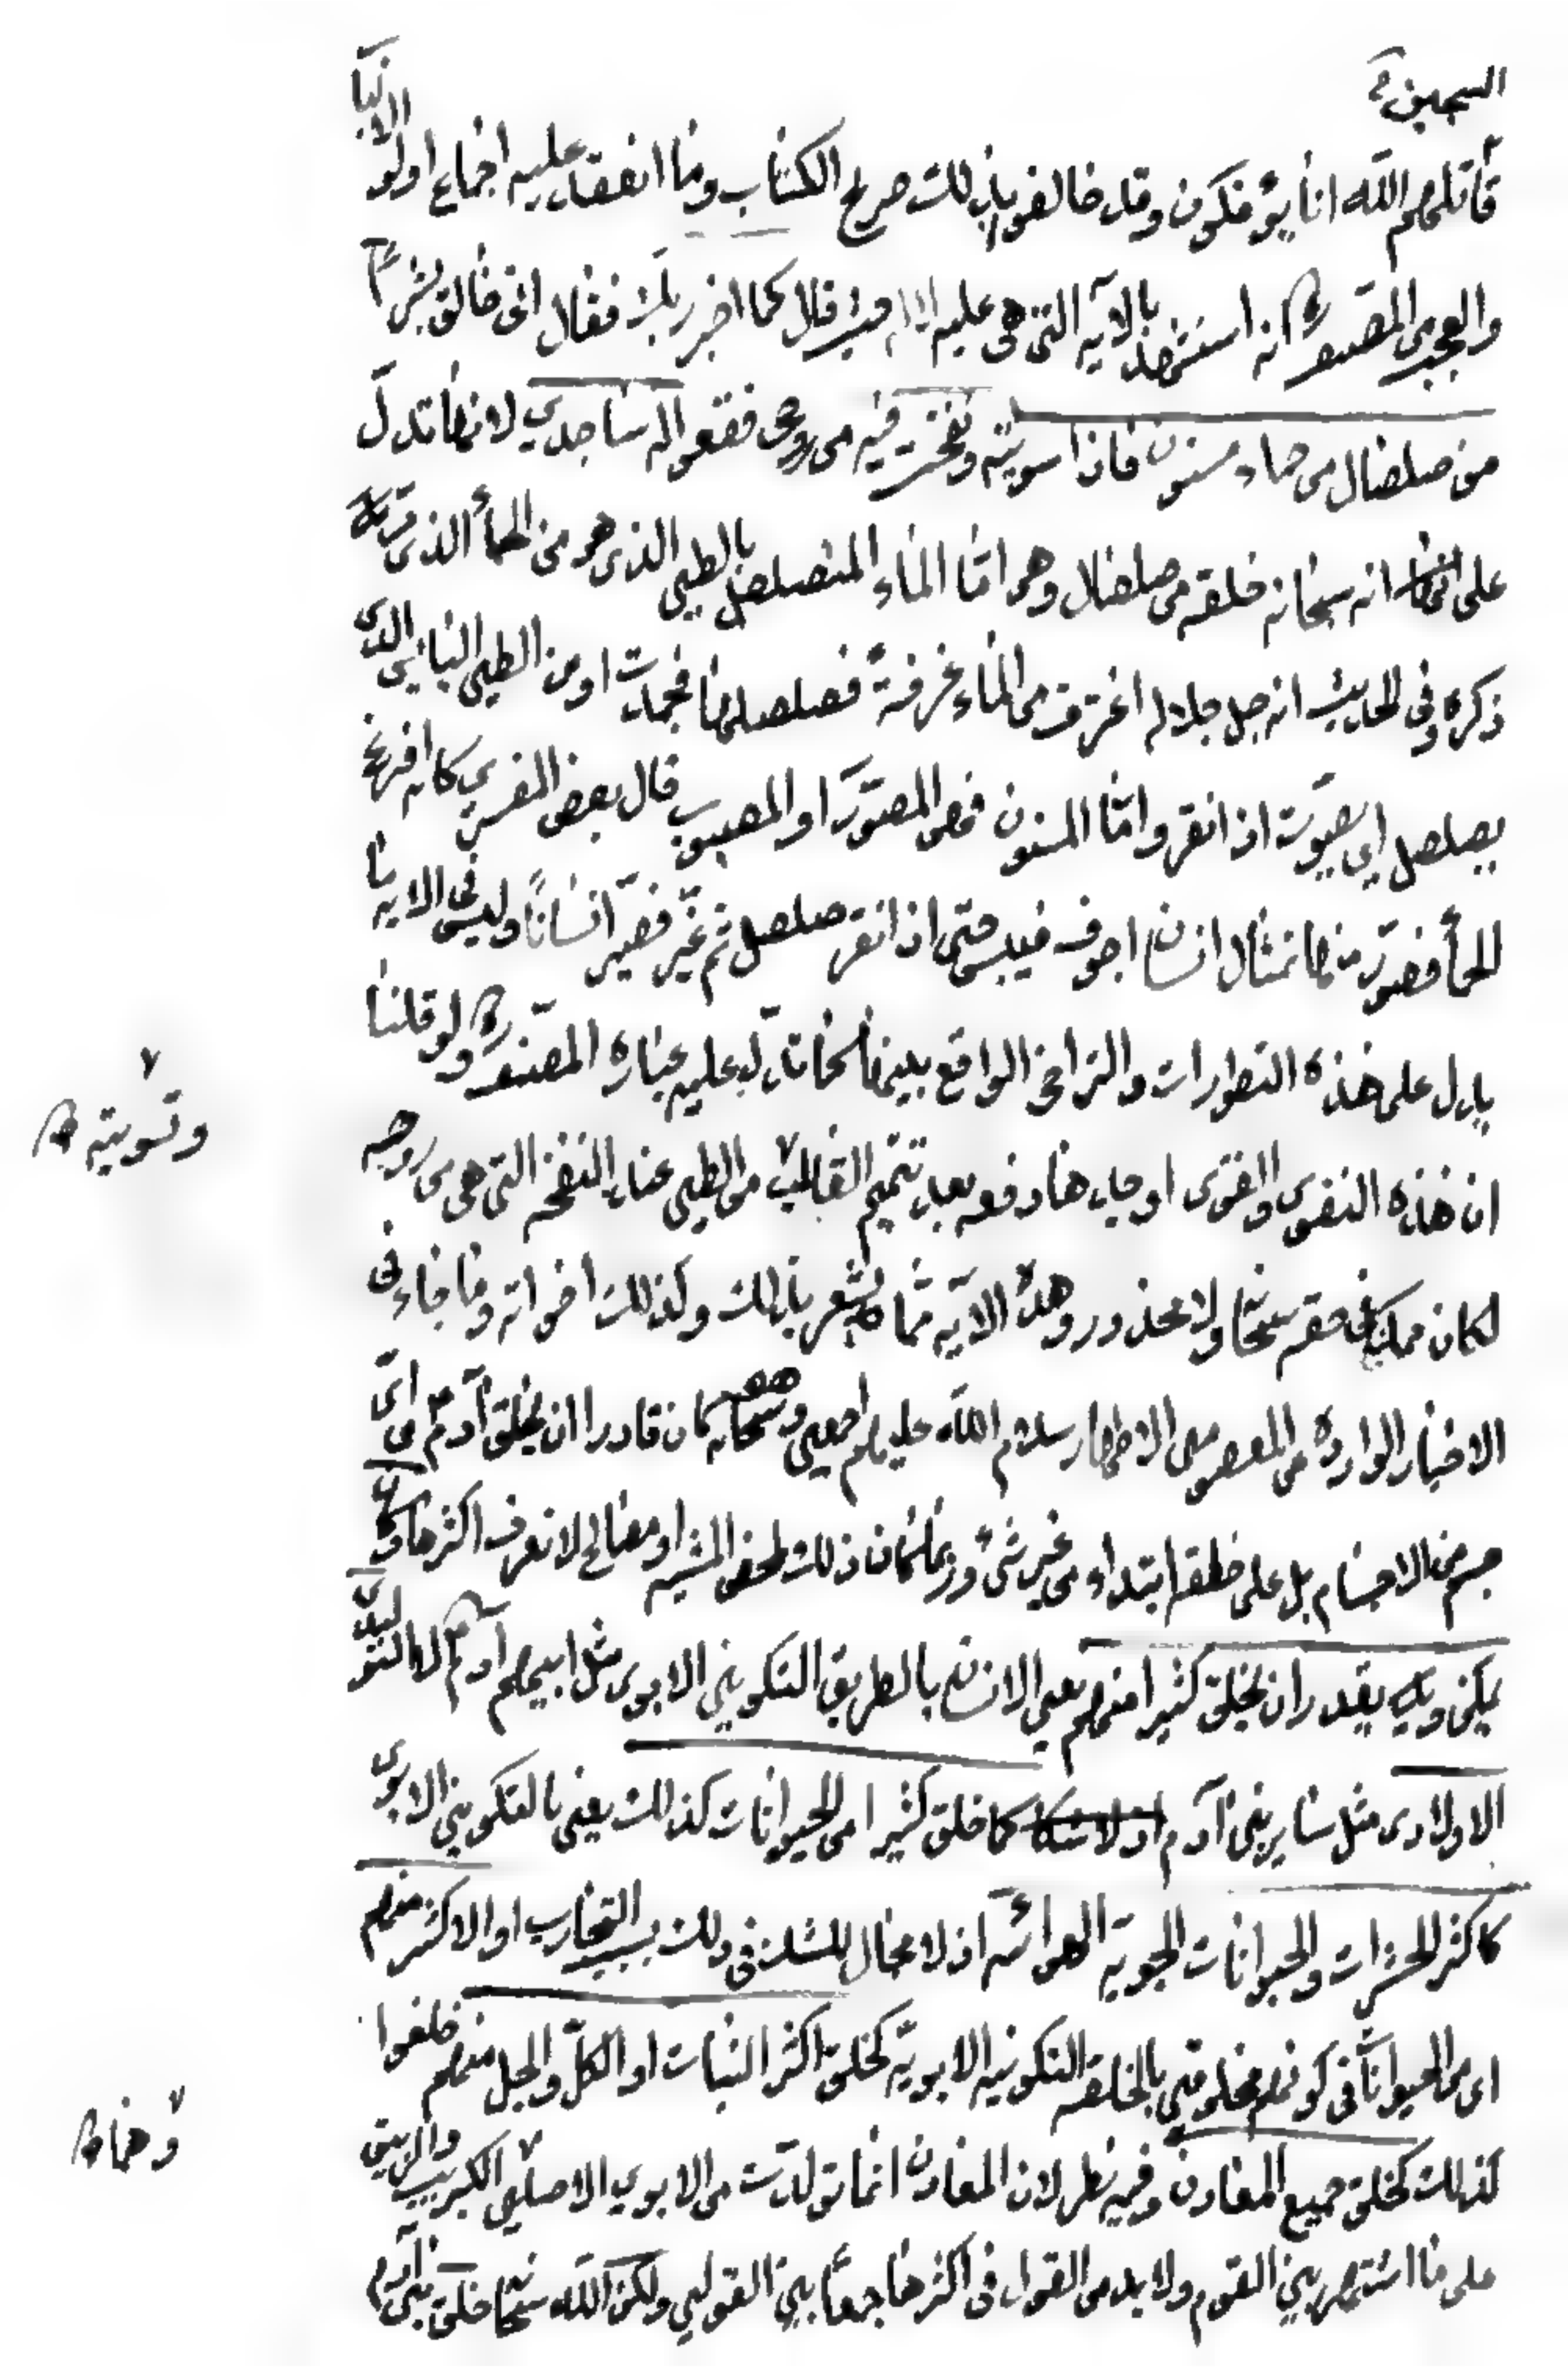 السجين
قاتلهم الله انا يؤفكون وقد خالفو بذلك صريح الكتاب وما انعقد عليه اجماع اولو الالباب
والعجب من المصنف انه استشهد بالآيه التى هى عليه حيث قال كما اخبر ربك فقال انى خالق بشرا
من صلصال من حماء مسنون فاذا سويته ونفخت فيه من روحى فقعوا له ساجدين لانها تدل
على انه سبحانه خلقه من صلصال وهو امّا الماء المتصلصل بالطين الذى هو من الحمأ الذى
ذكره وفى الحديث انه جل جلاله اغترف من الماء غرفةً فصلصلها فجمدت او من الطين اليابس الذى
يصلصل اى يصوّت اذا نقر وامّا المسنون فهو المصوّر او المصبوب قال بعض المفسرين كانه افرغ
الحمأ فصوّر منها تمثال انسان اجوف فيبس حتى اذا نقر صلصل ثم غيّر فصيّر انساناً وليس فى الايه ما
يدل على هذه التطورات والتراخى الواقع بينها كما تدل عليه عباره المصنف ولو قلنا
ان هذه النفوس والقوى اوجدها دفعه بعد تتميم القالب من الطين عند النفخه التى هى من روحه
وتسويته
لكان ممكنا فى حقه سبحانه ولا محذور وهذه الآيه مما يشعر بذلك وكذلك اخواته وما جاء فى
الاخبار الوارده من المعصومين الاطهار سلام الله عليهم اجمعين وهو سبحانه كان قادرا ان يخلق آدم من اىّ
جسم من الاجسام بل على خلقه ابتداء من غير شئ وربما كان ذلك لمحض المشيه او مصالح لا نعرف اكثرها وكان
يمكن ويقدر ان يخلق كثيرا منهم يعنى الانسان بالطريق التكوينى الابوى مثل ابيهم آدم لا التوليدى
الاولادى مثل ساير بنى آدم كما خلق كثيرا من الحيوانات كذالك يعنى بالتكوينى الابوى
كاكثر الحشرات والحيوانات الجويه الهوائيه اذ لا مجال للشك فى ذلك بسبب التجارب او الاكثر منهم
اى من الحيوانات فى كونهم مخلوقين بالخلقه التكونيه الابويّه كخلق اكثر النبات او الكلّ والجل منهم خلقوا
كذلك كخلق جميع المعادن وفيه نظر لان المعادن انما تولدت من الابوين الاصلين الكبريت والزيبق
وهما
على ما اشتهر بين القوم ولا بد من القول فى اكثرها جمعاً بين القولين ولكن الله سبحانه خلق بنى آدم